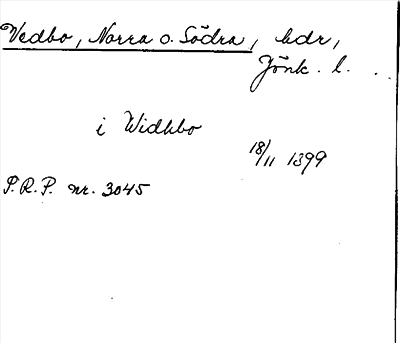 Vedbo, Norra o. Södra, hdr,
Jönk. l.
i Widhbo
18/11 1399
P.R.P. nr. 3045